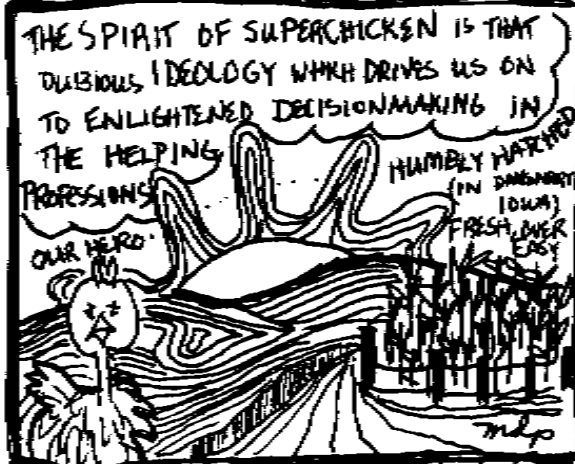 THE SPIRIT OF SUPERCHICKEN IS THAT
DUBIOUS IDEOLOGY WHICH DRIVES US ON
TO ENLIGHTENED DECISIONMAKING IN
THE HELPING
PROFESSIONS
OUR HERO
HUMBLY HATCHED
(IN DAVENPORT
IOWA)
FRESH, OVER
EASY
mdp